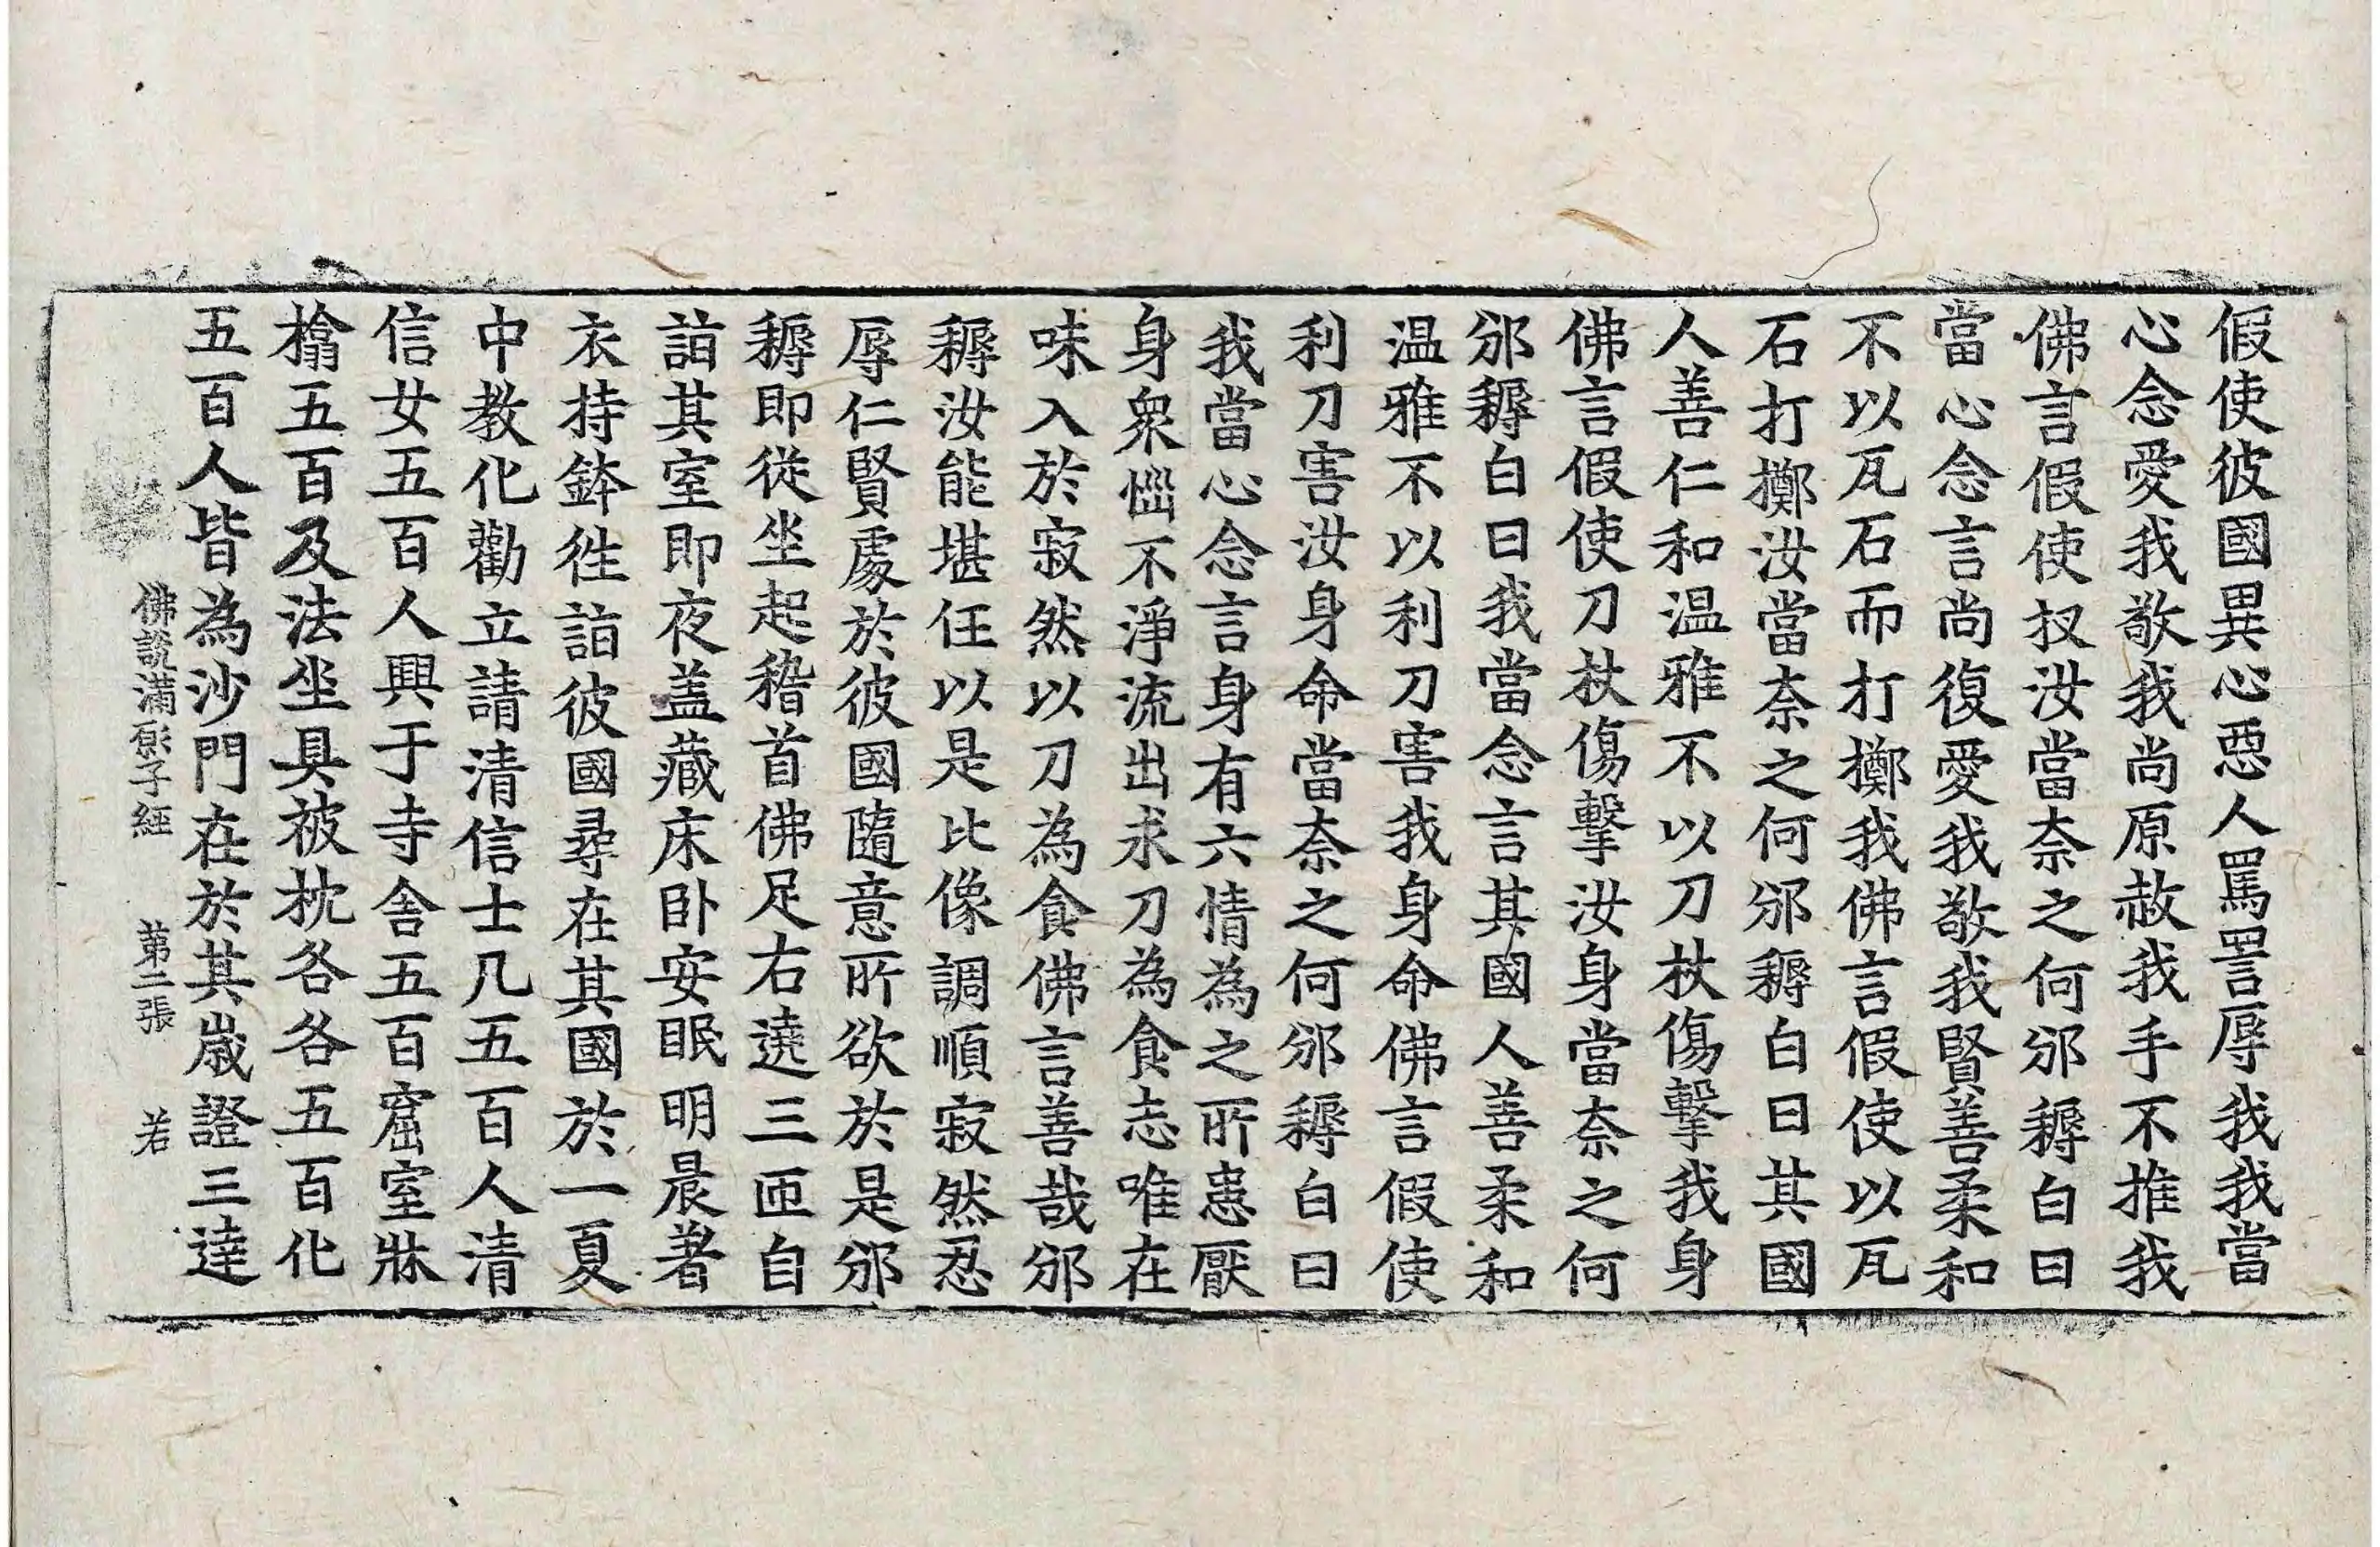 假使彼國異心惡人罵詈辱我我當
心念愛我敬我尚原赦我手不推我
佛言假使扠汝當奈之何邠耨白曰
當心念言尚復愛我敬我賢善柔和
不以瓦石而打擲我佛言假使以瓦
石打擲汝當奈之何邠耨白曰其國
人善仁和温雅不以刀杖傷擊我身
佛言假使刀杖傷擊汝身當奈之何
邠耨白曰我當念言其國人善柔和
温雅不以利刀害我身命佛言假使
利刀害汝身命當奈之何邠耨白曰
我當心念言身有六情為之所患厭
身衆惱不淨流出求刀為食志唯在
味入於寂然以刀為食佛言善哉邠
耨汝能堪任以是比像調順寂然忍
辱仁賢處於彼國隨意所欲於是邠
耨即從坐起稽首佛足右遶三匝自
詣其室即夜盖藏床卧安眠明晨著
衣持鉢徃詣彼國尋在其國於一夏
中教化勸立請清信士凡五百人清
信女五百人興于寺舎五百窟室牀
榻五百及法坐具被枕各各五百化
五百人皆為沙門在於其歳證三達
佛說滿願子經 苐二張 若